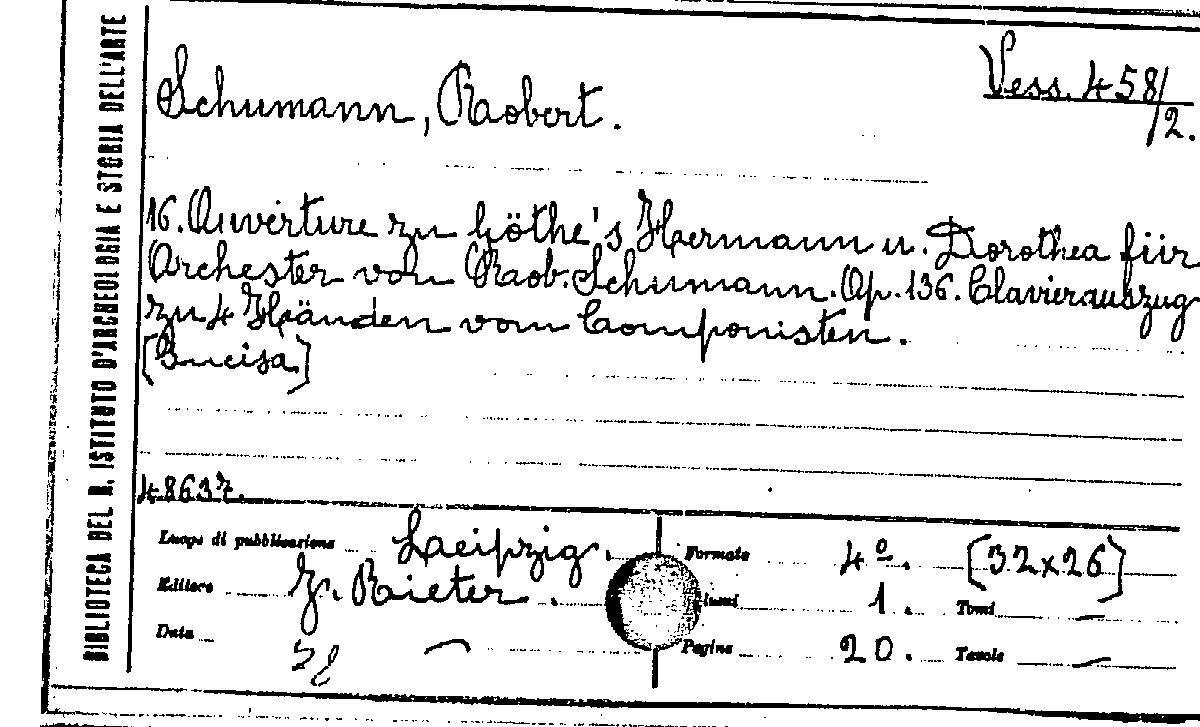 BIBLIOTECA DEL R. ISTITUTO D'ARCHEOLOGIA E STORIA DELL'ARTE
Schumann, Robert.
Vess. 458/
/2.
16. Ouvertüre zu Göthe's Hermann u. Dorothea für
Orchester von Rob. Schumann. Op. 136. Clavierauszug
zu 4 Händen vom Componisten.
[Incisa]
48637.
Luogo di pubblicazione Leipzig. Formato 4º. [32x26]
Editore J. Rieter. Volumi 1. Tomi —
Data — Pagine 20. Tavole —